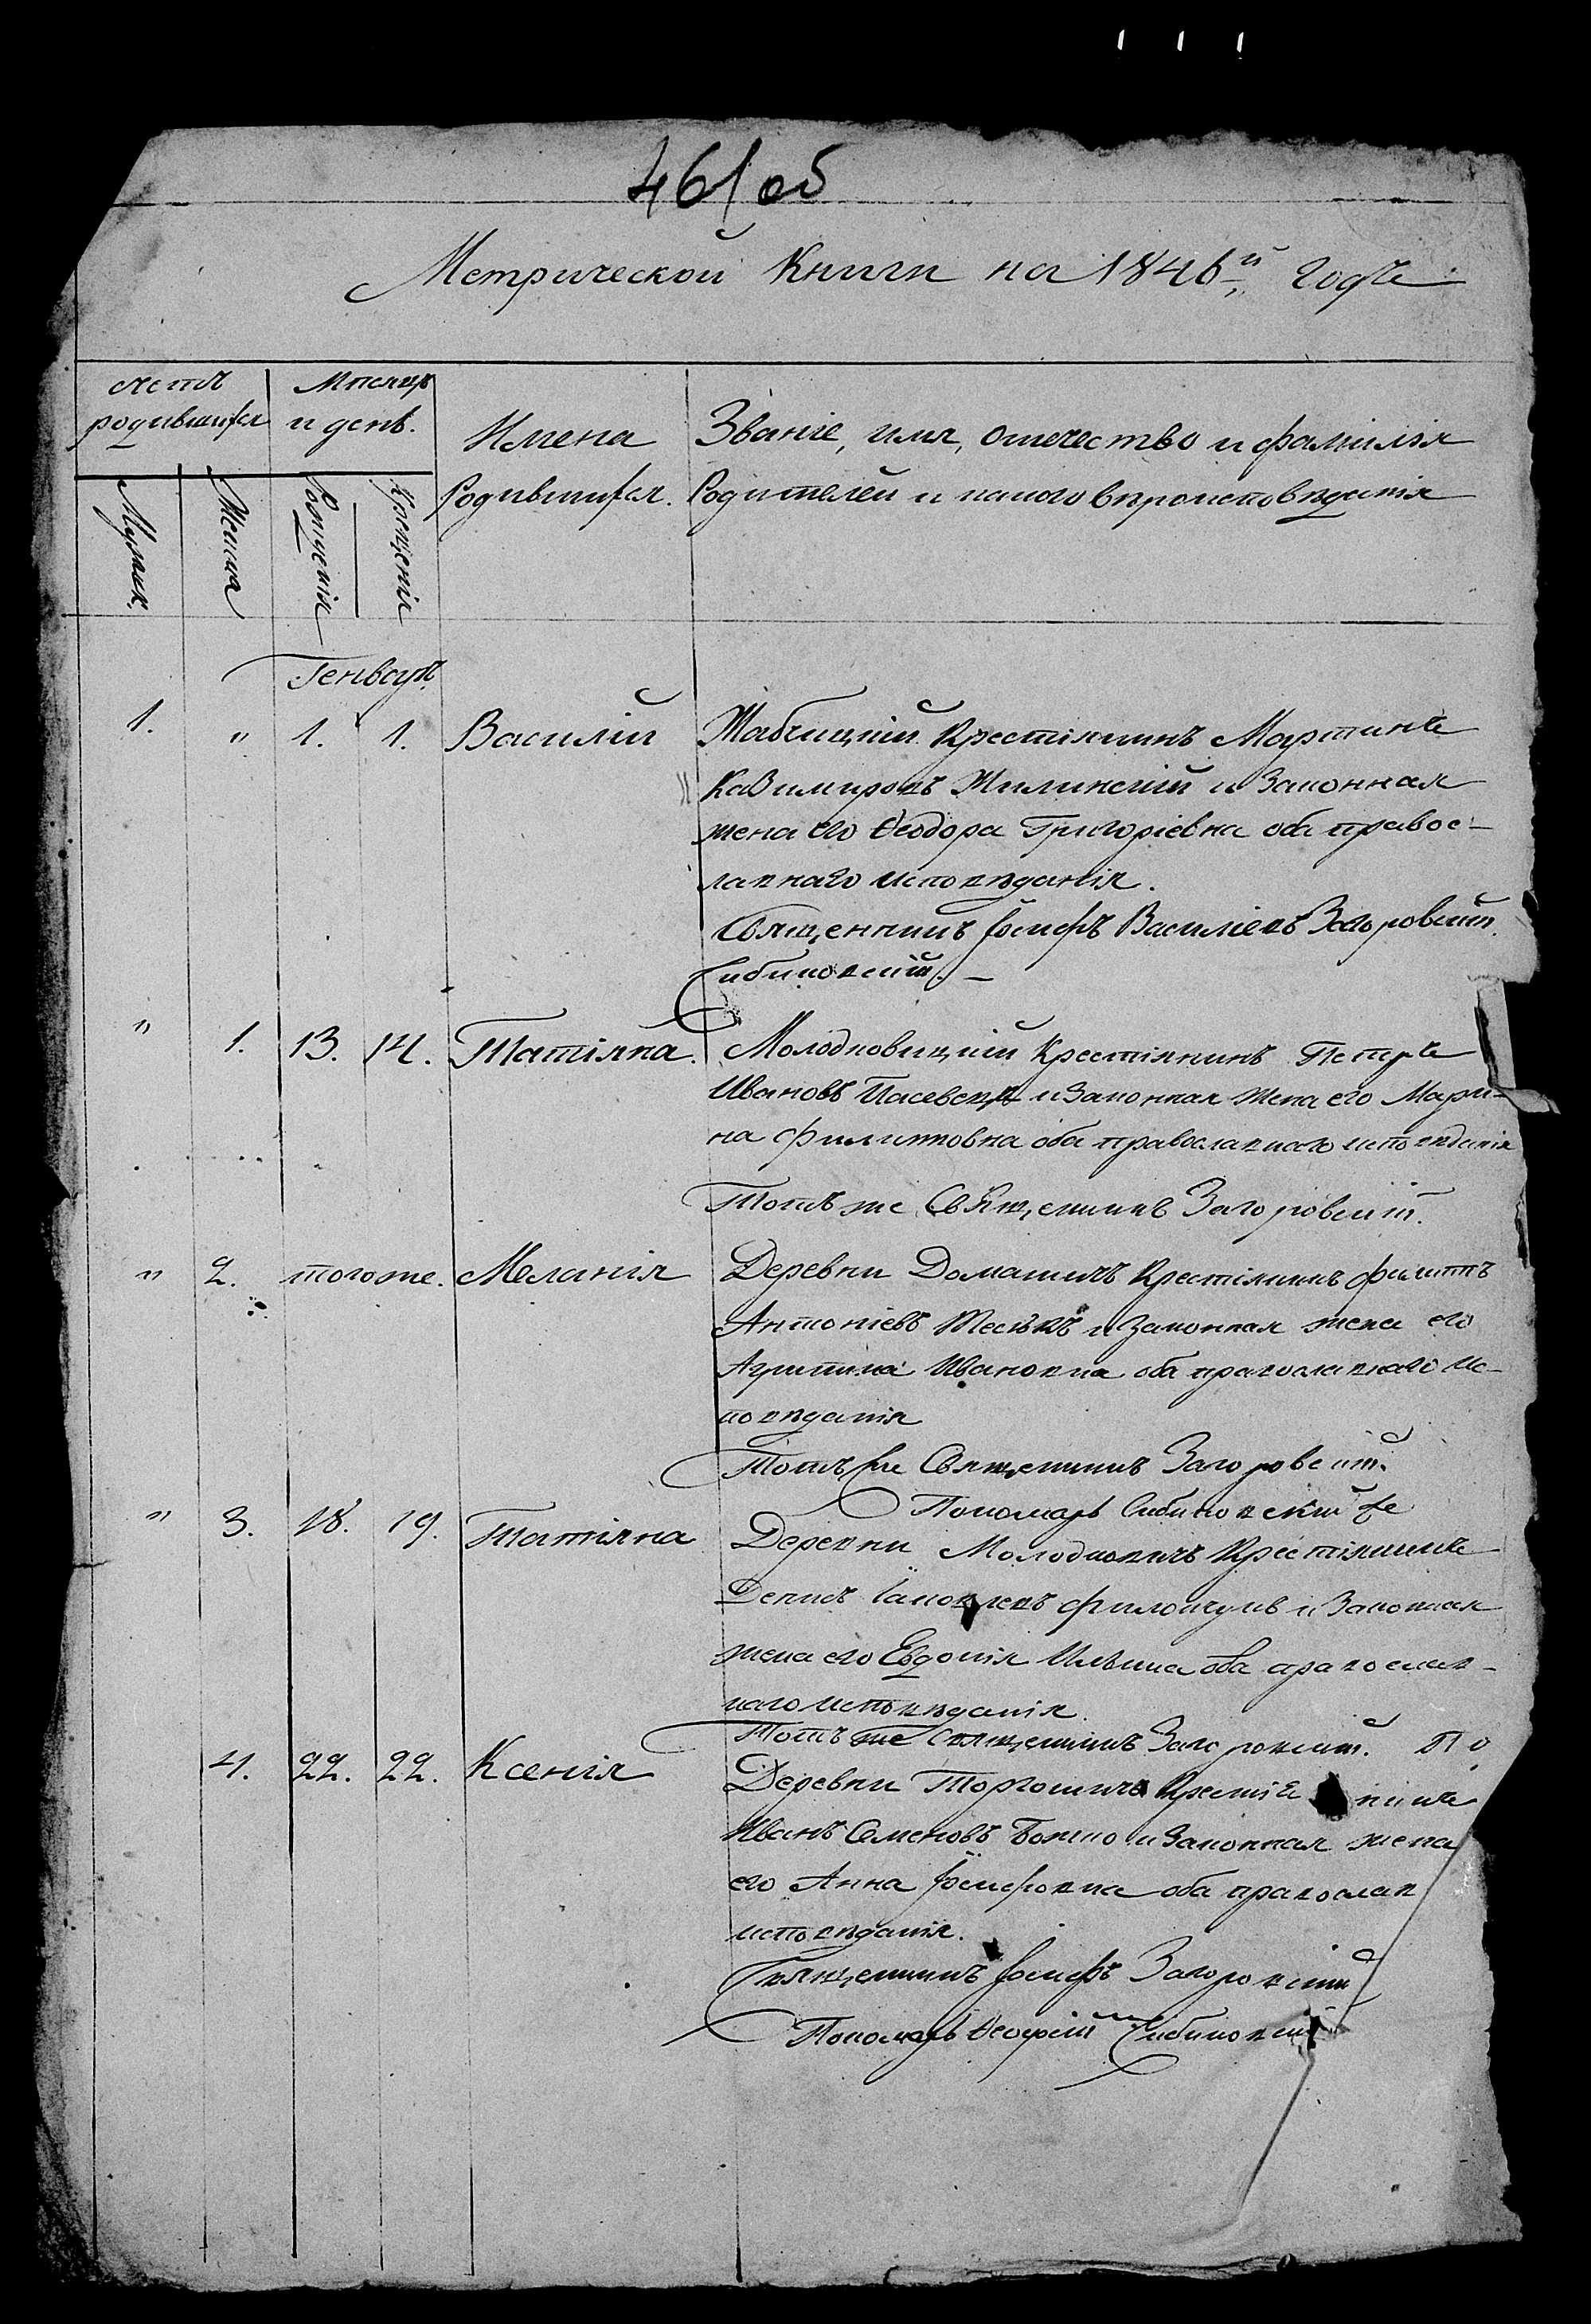 461 об
Метрической Книги на 1846й годъ
Счетъ родившихся
Мѣсяцъ и день.
Имена Родившихся.
Званіе, имя, отечество и фамилія
Родителей и какого вѣроисповѣданія
Мужск.
Женска
Рожденія
Крещенія
Генварь
1. " 1. 1. Василій Жабчицкій Крестіянинъ Мартинъ
Казимировъ Жилинскій и Законная
жена его Ѳеодора Григоріевна оба правос-
лавнаго исповѣданія.
Священникъ Іосифъ Василіевъ Загоровскій
Сибиковскій. -
" 1. 13. 14. Татіяна. Молодковицкій Крестіянинъ Петръ
Ивановъ и Законная жена его Мари-
на Филиповна оба православнаго исповѣданія
Тотъ же Священникъ Загоровскій.
" 2. тогоже. Меланія Деревни Домашичъ Крестіянинъ Филипъ
Антоніевъ и Законная жена его
Агрипина Ивановна оба православнаго Ис-
повѣданія
Тотъ же Священникъ Загоровскій.
Пономарь Сибиковскій
" 3. 18. 19. Татіяна Деревни Молодковичъ Крестіянинъ
Денисъ Іаковлевъ и Законная
жена его Евдокія Ильина оба православ-
наго исповѣданія.
Тотъ же Священникъ Загоровскій. По
4. 22. 22. Ксенія Деревни Торгошичъ Крестія нинъ
Иванъ Семеновъ Божко и Законная жена
его Анна Іосифовна оба православ
исповѣданія.
Священникъ Іосифъ Загоровскій
Пономарь Сибиковскій